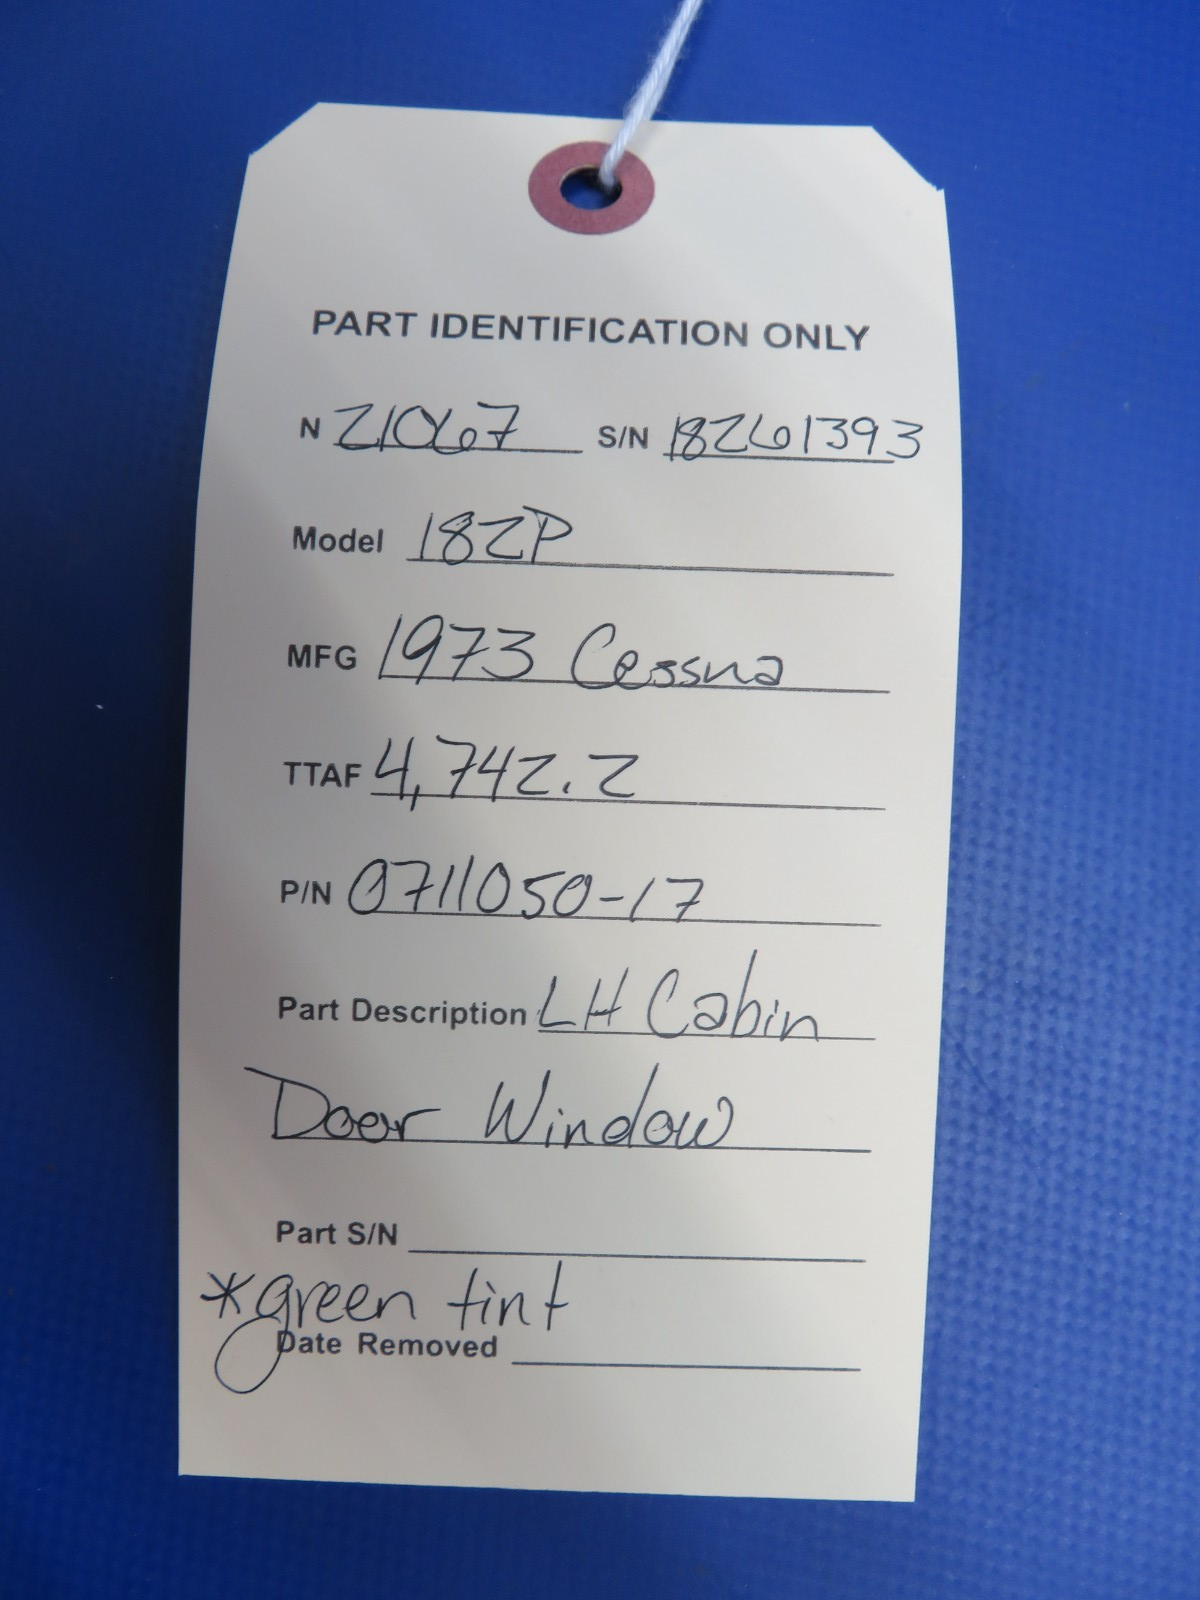 PART IDENTIFICATION ONLY
N 21067 S/N 18261393
Model 182P
MFG 1973 Cessna
TTAF 4,742.2
P/N 0711050-17
Part Description LH Cabin
Door Window
Part S/N
*green tint
Date Removed